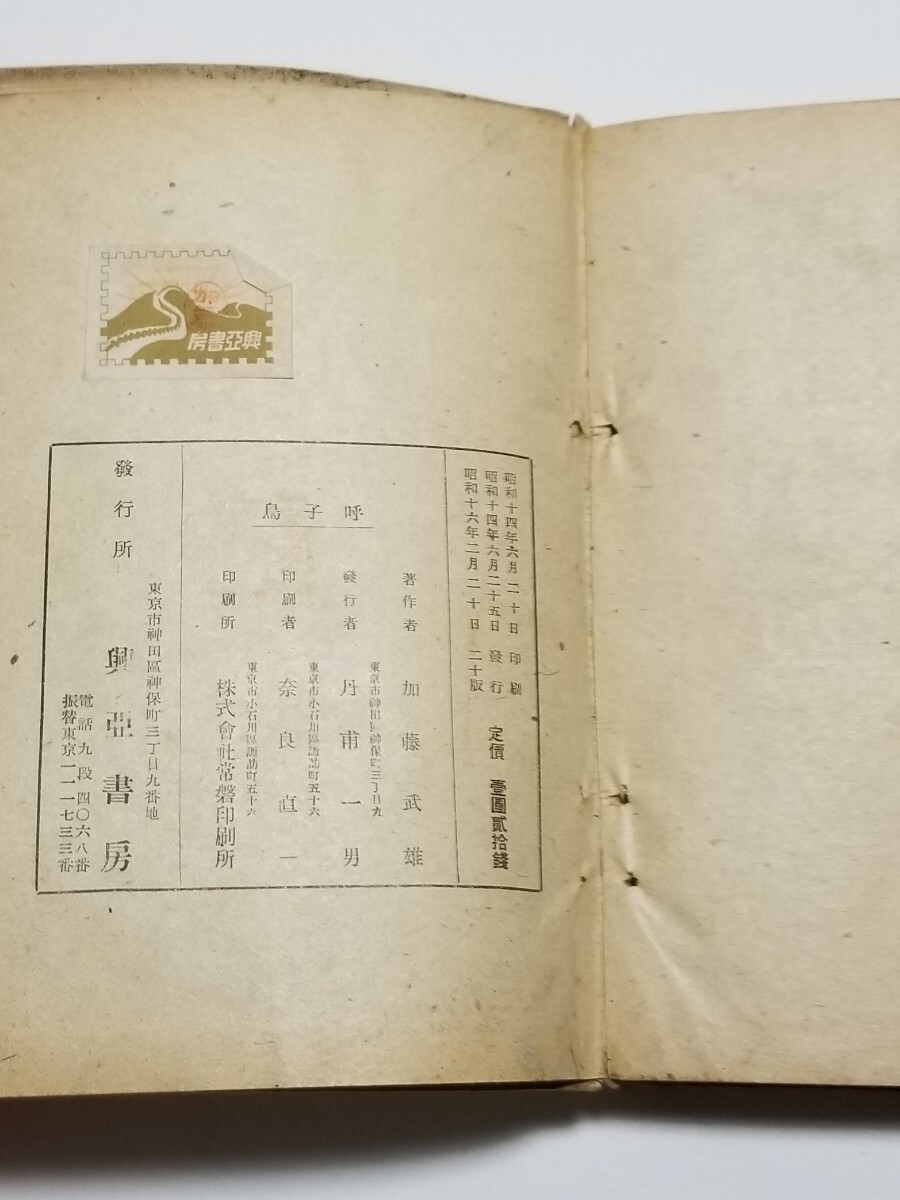 興亞書房
昭和十四年六月二十日 印刷
昭和十四年六月二十五日 發行
昭和十六年二月二十日 二十版
定價 壹圓貳拾錢
呼子鳥
著作者 加藤武雄
東京市神田區神保町三丁目九
發行者 丹甫一男
東京市小石川區諏訪町五十六
印刷者 奈良直一
東京市小石川區諏訪町五十六
印刷所 株式會社常磐印刷所
發行所
東京市神田區神保町三丁目九番地
興亞書房
電話九段四〇六八番
振替東京一一一七三三番